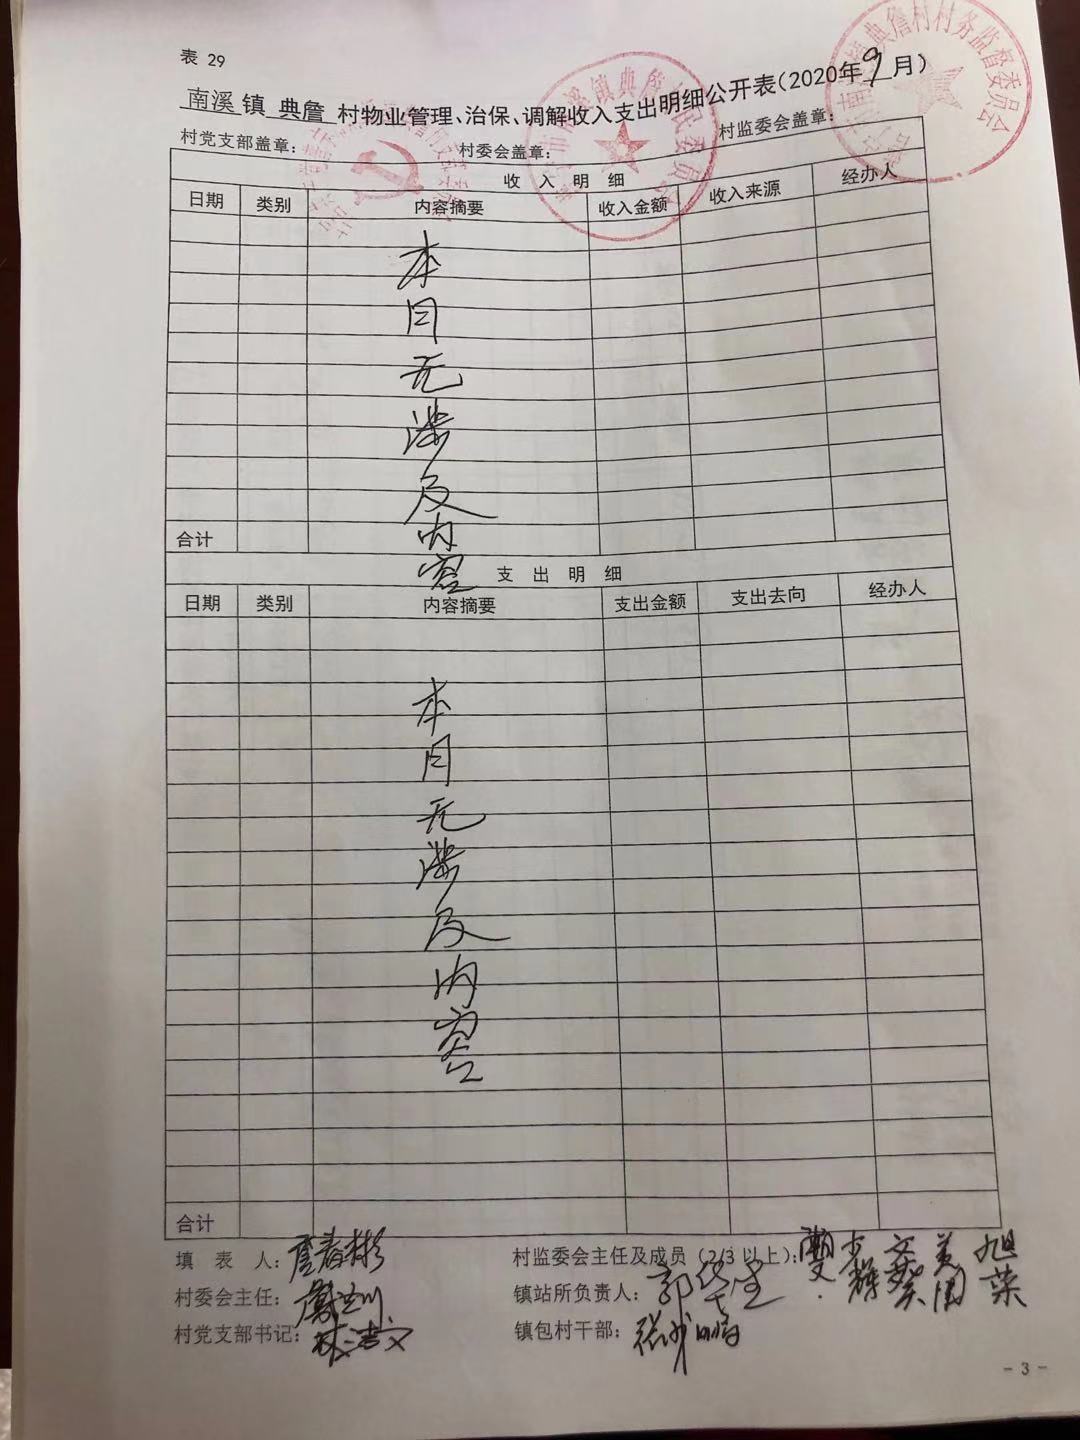 表 29
南溪 镇 典詹 村物业管理、治保、调解收入支出明细公开表(2020年9月)
村党支部盖章: 村委会盖章: 村监委会盖章:
收 入 明 细
日期 类别 内容摘要 收入金额 收入来源 经办人
本月无涉及内容
合计
支 出 明 细
日期 类别 内容摘要 支出金额 支出去向 经办人
本月无涉及内容
合计
填 表 人: 村监委会主任及成员(2/3以上):
村委会主任: 镇站所负责人:
村党支部书记: 镇包村干部:
- 3 -